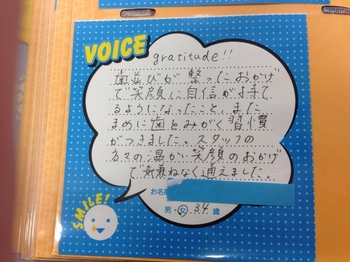 VOICE
gratitude!!
歯並びが整ったおかげ
で笑顔に自信が持て
るようになったこと、また
まめに歯をみがく習慣
がつきました。スタッフの
方々の温かい笑顔のおかげ
で気兼ねなく通えました。
お名前
男・女 34 歳
SMILE!